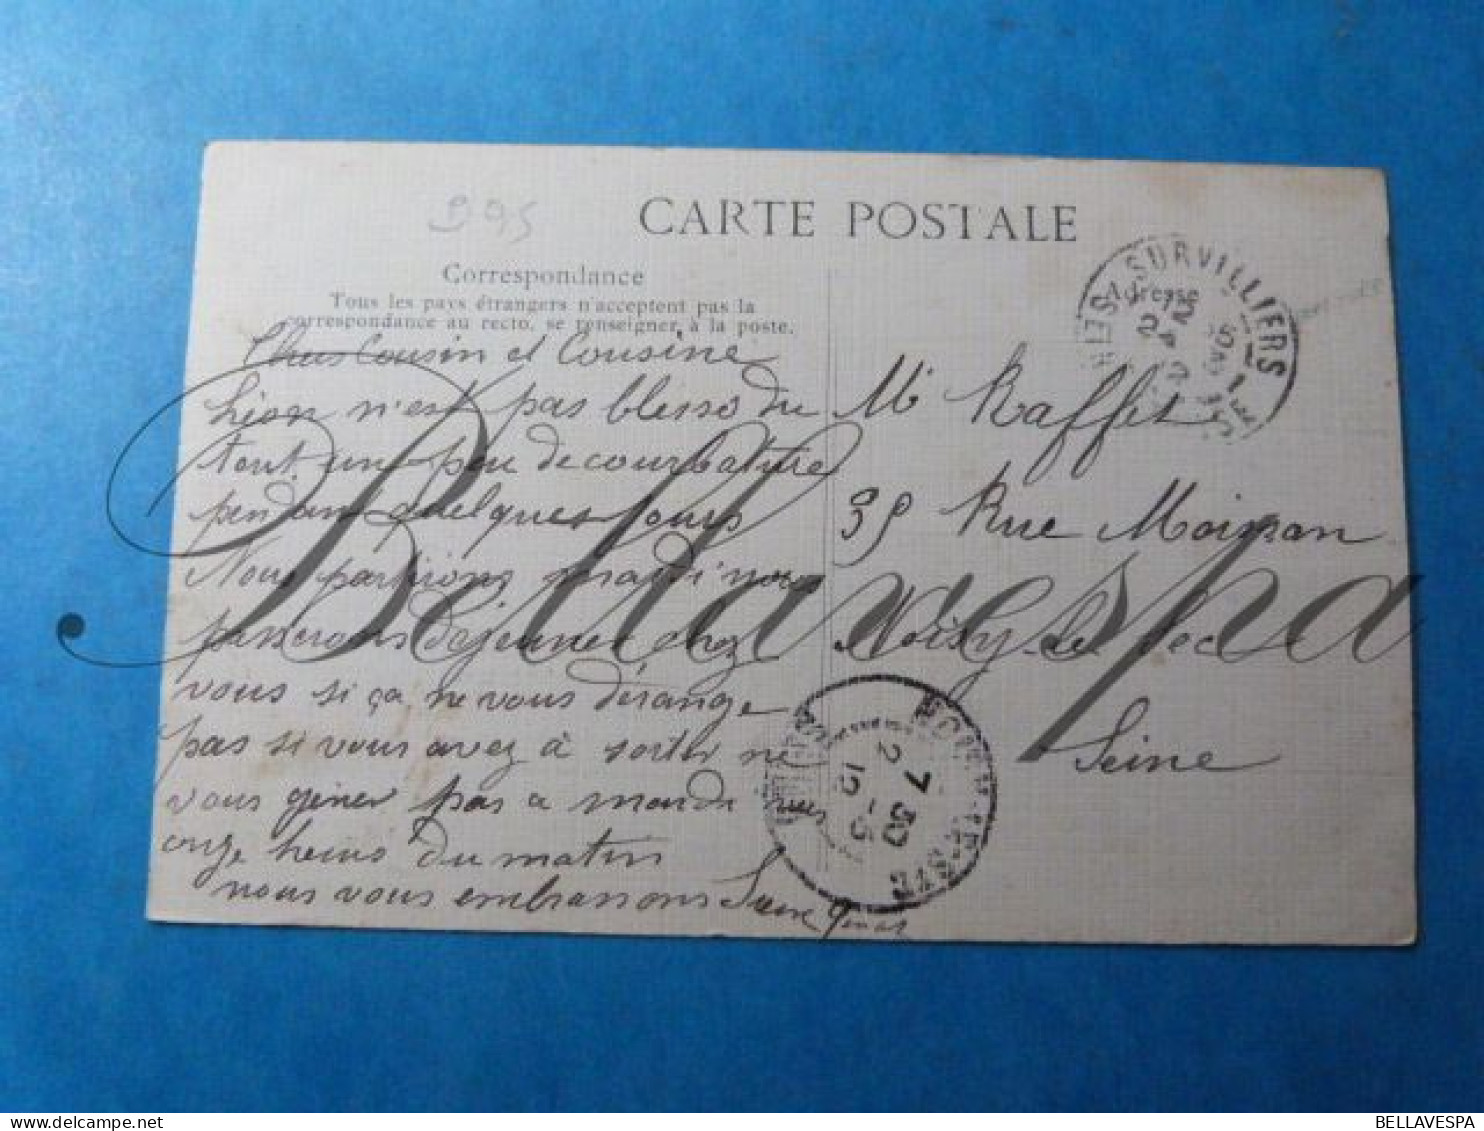 D95
CARTE POSTALE
Correspondance
Tous les pays étrangers n'acceptent pas la
correspondance au recto, se renseigner à la poste.
Adresse
SURVILLIERS
Chers Cousin et Cousine
Léon n'est pas blessé du
tout un peu de courbature
pendant quelques jours
Nous partirons mardi nous
passerons déjeuner chez
vous si ça ne vous dérange
pas si vous avez à sortir ne
vous gener pas a mardi vers
onze heures du matin
nous vous embrassons
Mr Raffet
35 Rue Moissan
Noisy le Sec
Seine
7 30
Bellavespa
BELLAVESPA